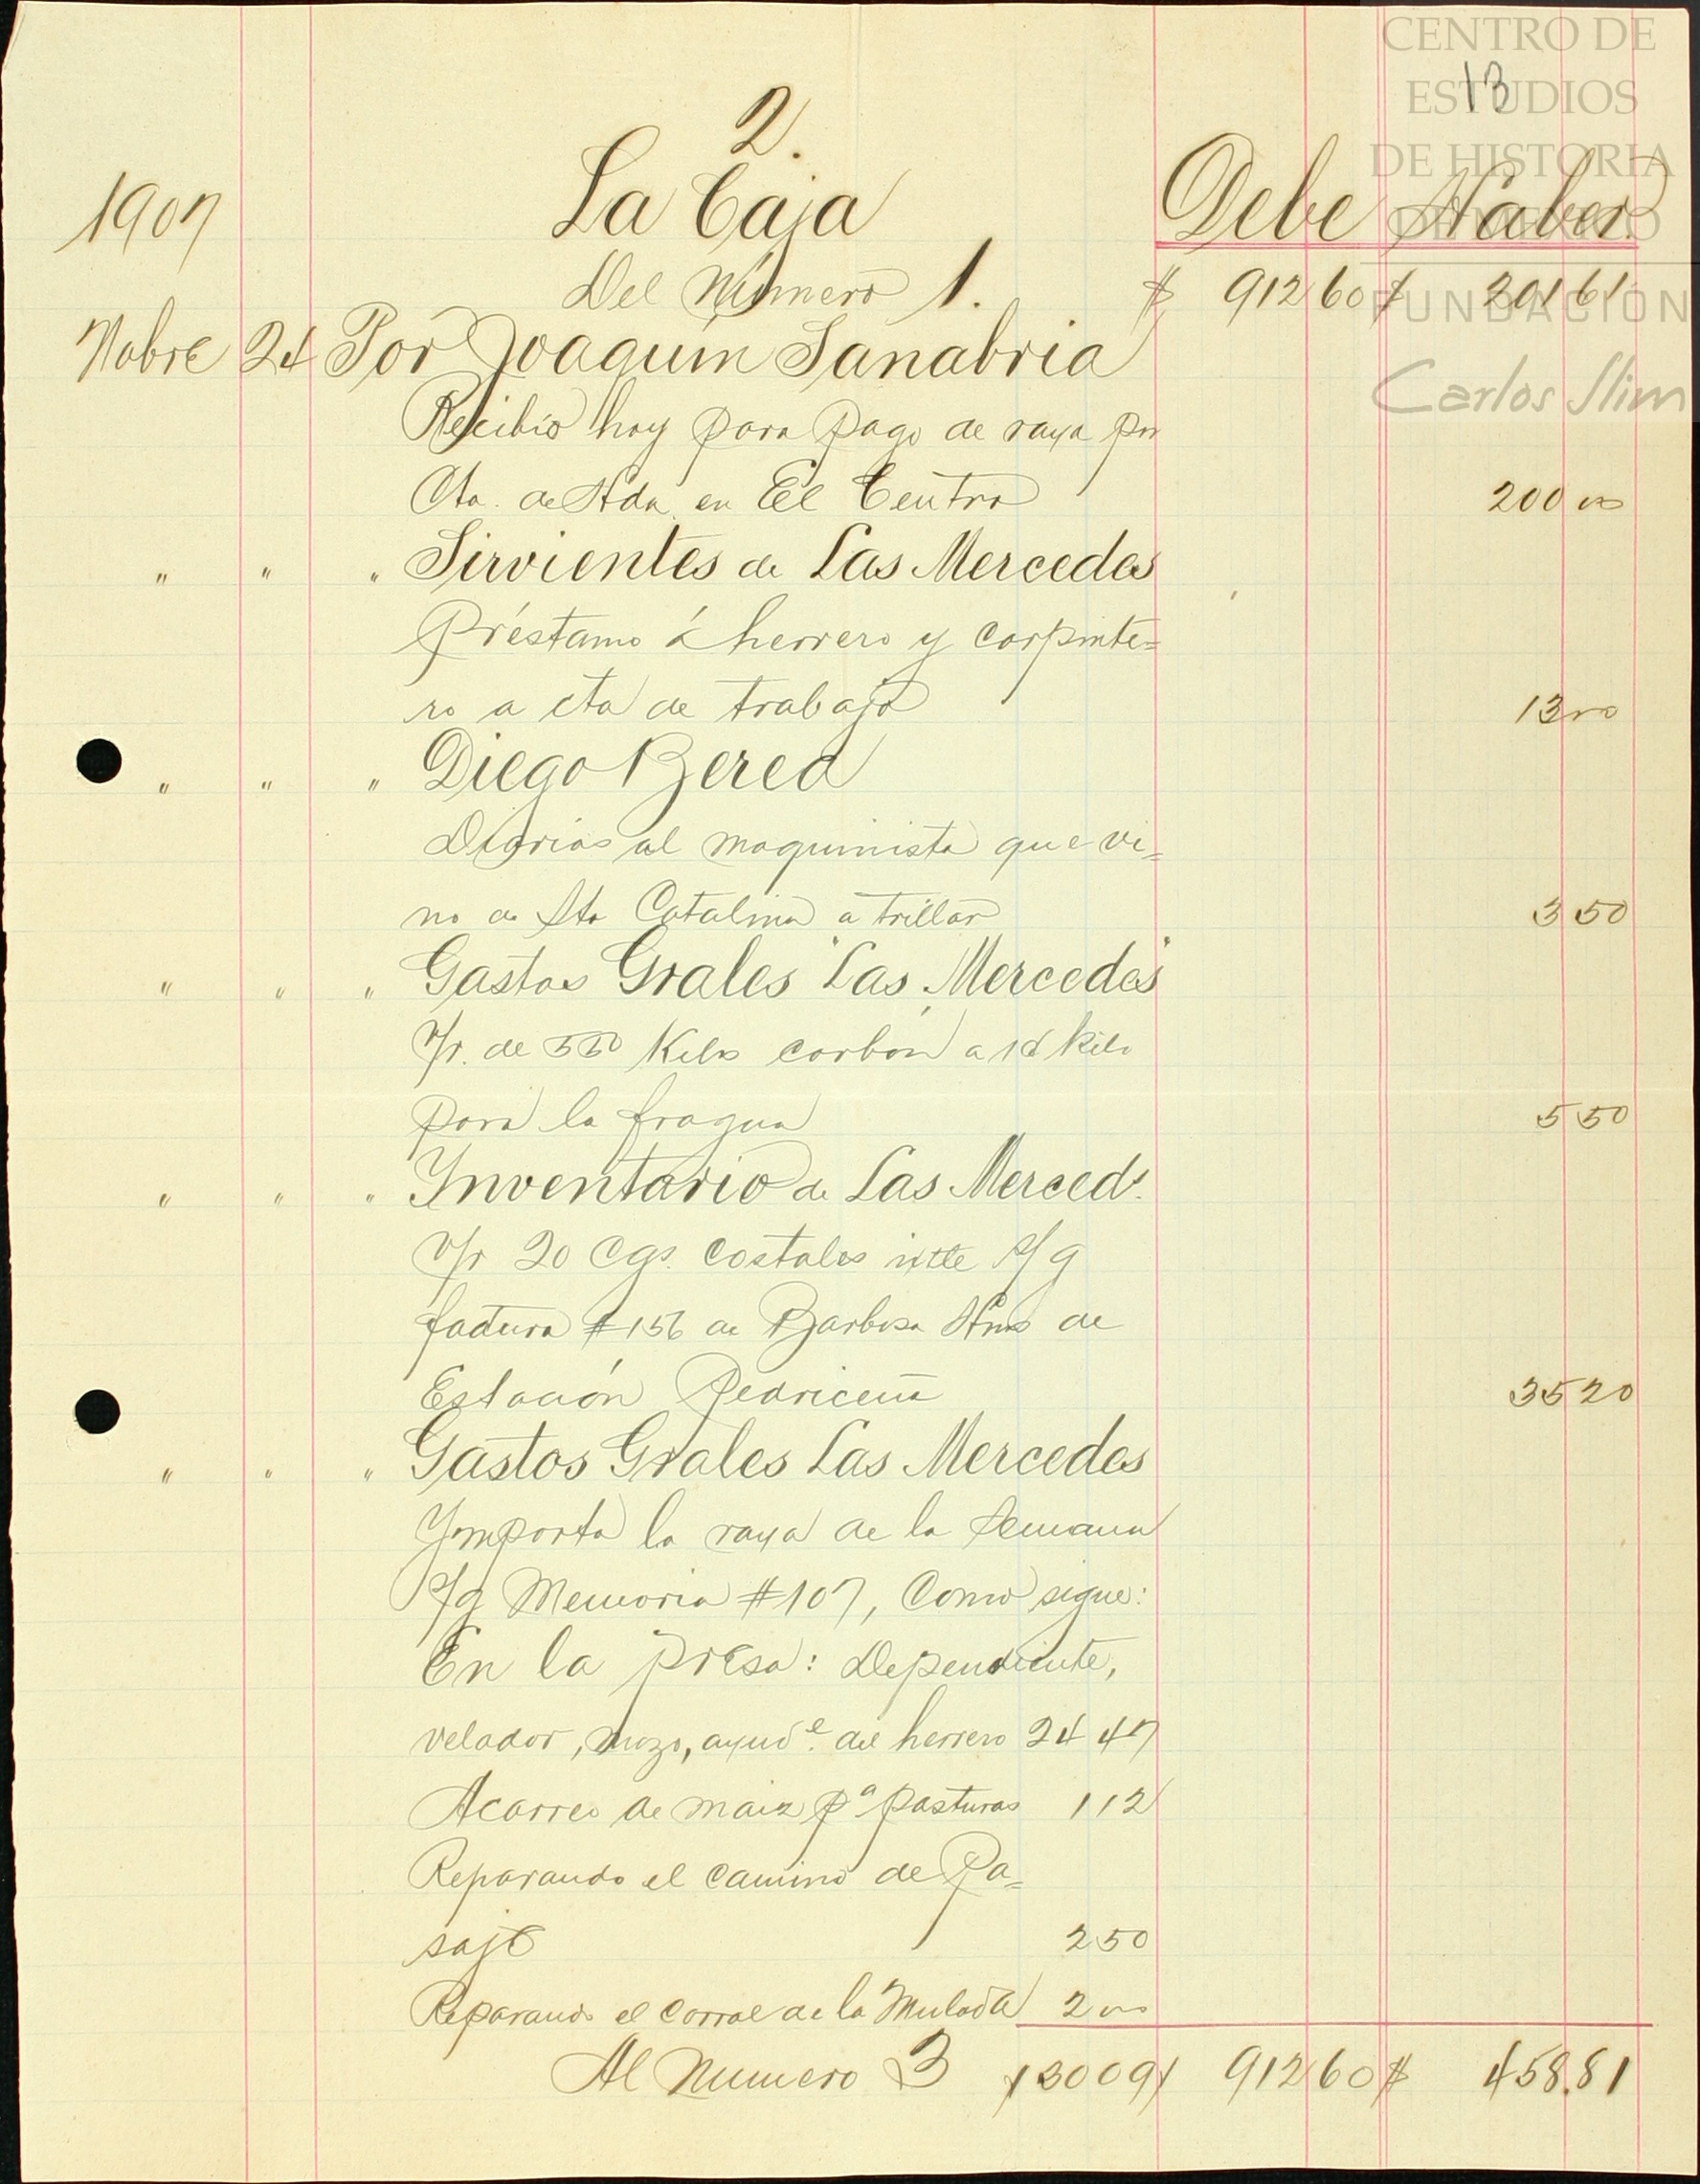 CENTRO DE
ESTUDIOS
DE HISTORIA
DE MÉXICO
FUNDACIÓN
Carlos Slim
13
2.
1907 La Caja Debe Haber
Del Número 1. $ 912 60 $ 201 61
Nobre 24 Por Joaquín Sanabria
Recibió hoy para pago de raya por
Cta. de Hda. en El Centro 200 00
" " " Sirvientes de Las Mercedes
Préstamo á herrero y carpinte=
ro a cta de trabajo 13 00
" " " Diego Berea
Diarios al maquinista que vi=
no de Sta Catalina a trillar 3 50
" " " Gastos Grales "Las Mercedes"
V/r. de 550 Kilos carbón a 1¢ kilo
para la fragua 5 50
" " " Inventario de Las Merceds.
V/r 20 Cgs. Costales ixtle s/g
factura #156 de Barbosa Hnos de
Estación Pedriceña 35 20
" " " Gastos Grales Las Mercedes
Importa la raya de la semana
s/g Memoria #107, Como sigue:
En la presa: Dependiente,
velador, mozo, ayude. del herrero 24 47
Acarreo de maiz pa pasturas 1 12
Reparando el camino de Pa=
saje 2 50
Reparando el corral de la Mulada 2 00
Al Numero 3 $30 09 $ 912 60 $ 458.81